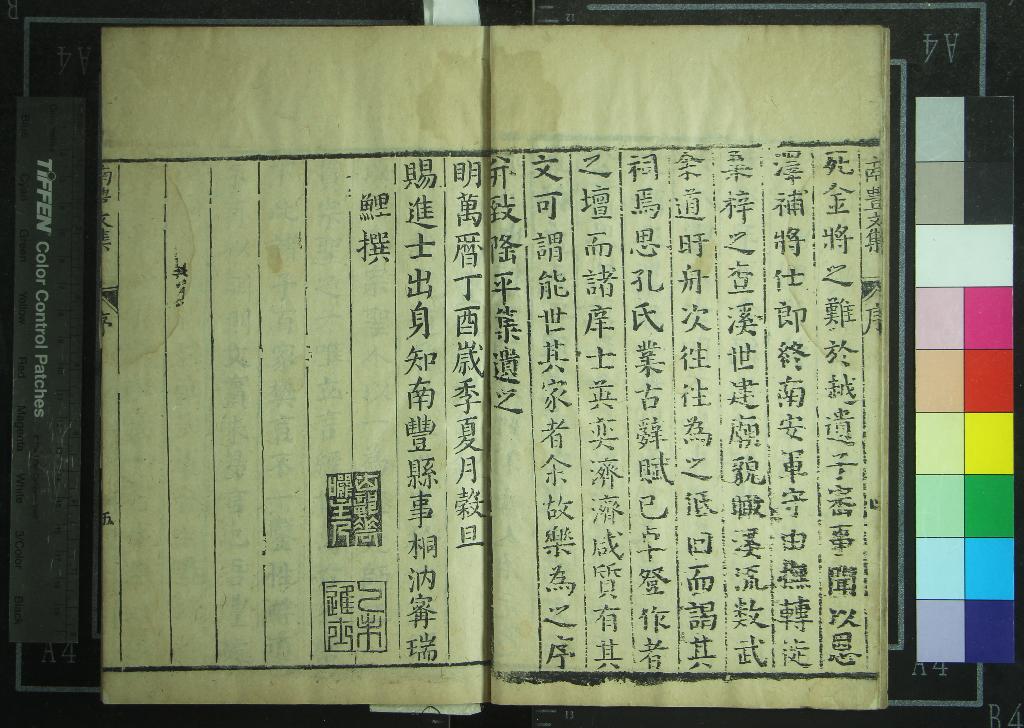 南豐文集
序
死金將之難於越遺子密事聞以恩
澤補將仕郎終南安軍守由撫轉徙
桑梓之查溪世建廟貌瞰溪流數武
余道盱舟次往往為之低回而謂其
祠焉思孔氏業古辭賦已卓登作者
之壇而諸庠士英奕濟濟咸質有其
文可謂能世其家者余故樂為之序
并致隆平集遺之
明萬曆丁酉歲季夏月穀旦
賜進士出身知南豐縣事桐汭甯瑞
鯉撰
乙未
進士
南豐文集
序
五
TIFFEN Color Control Patches
Blue
Cyan
Green
Yellow
Red
Magenta
White
3/Color
Black
A4
A4
A4
A4
B4
12
13